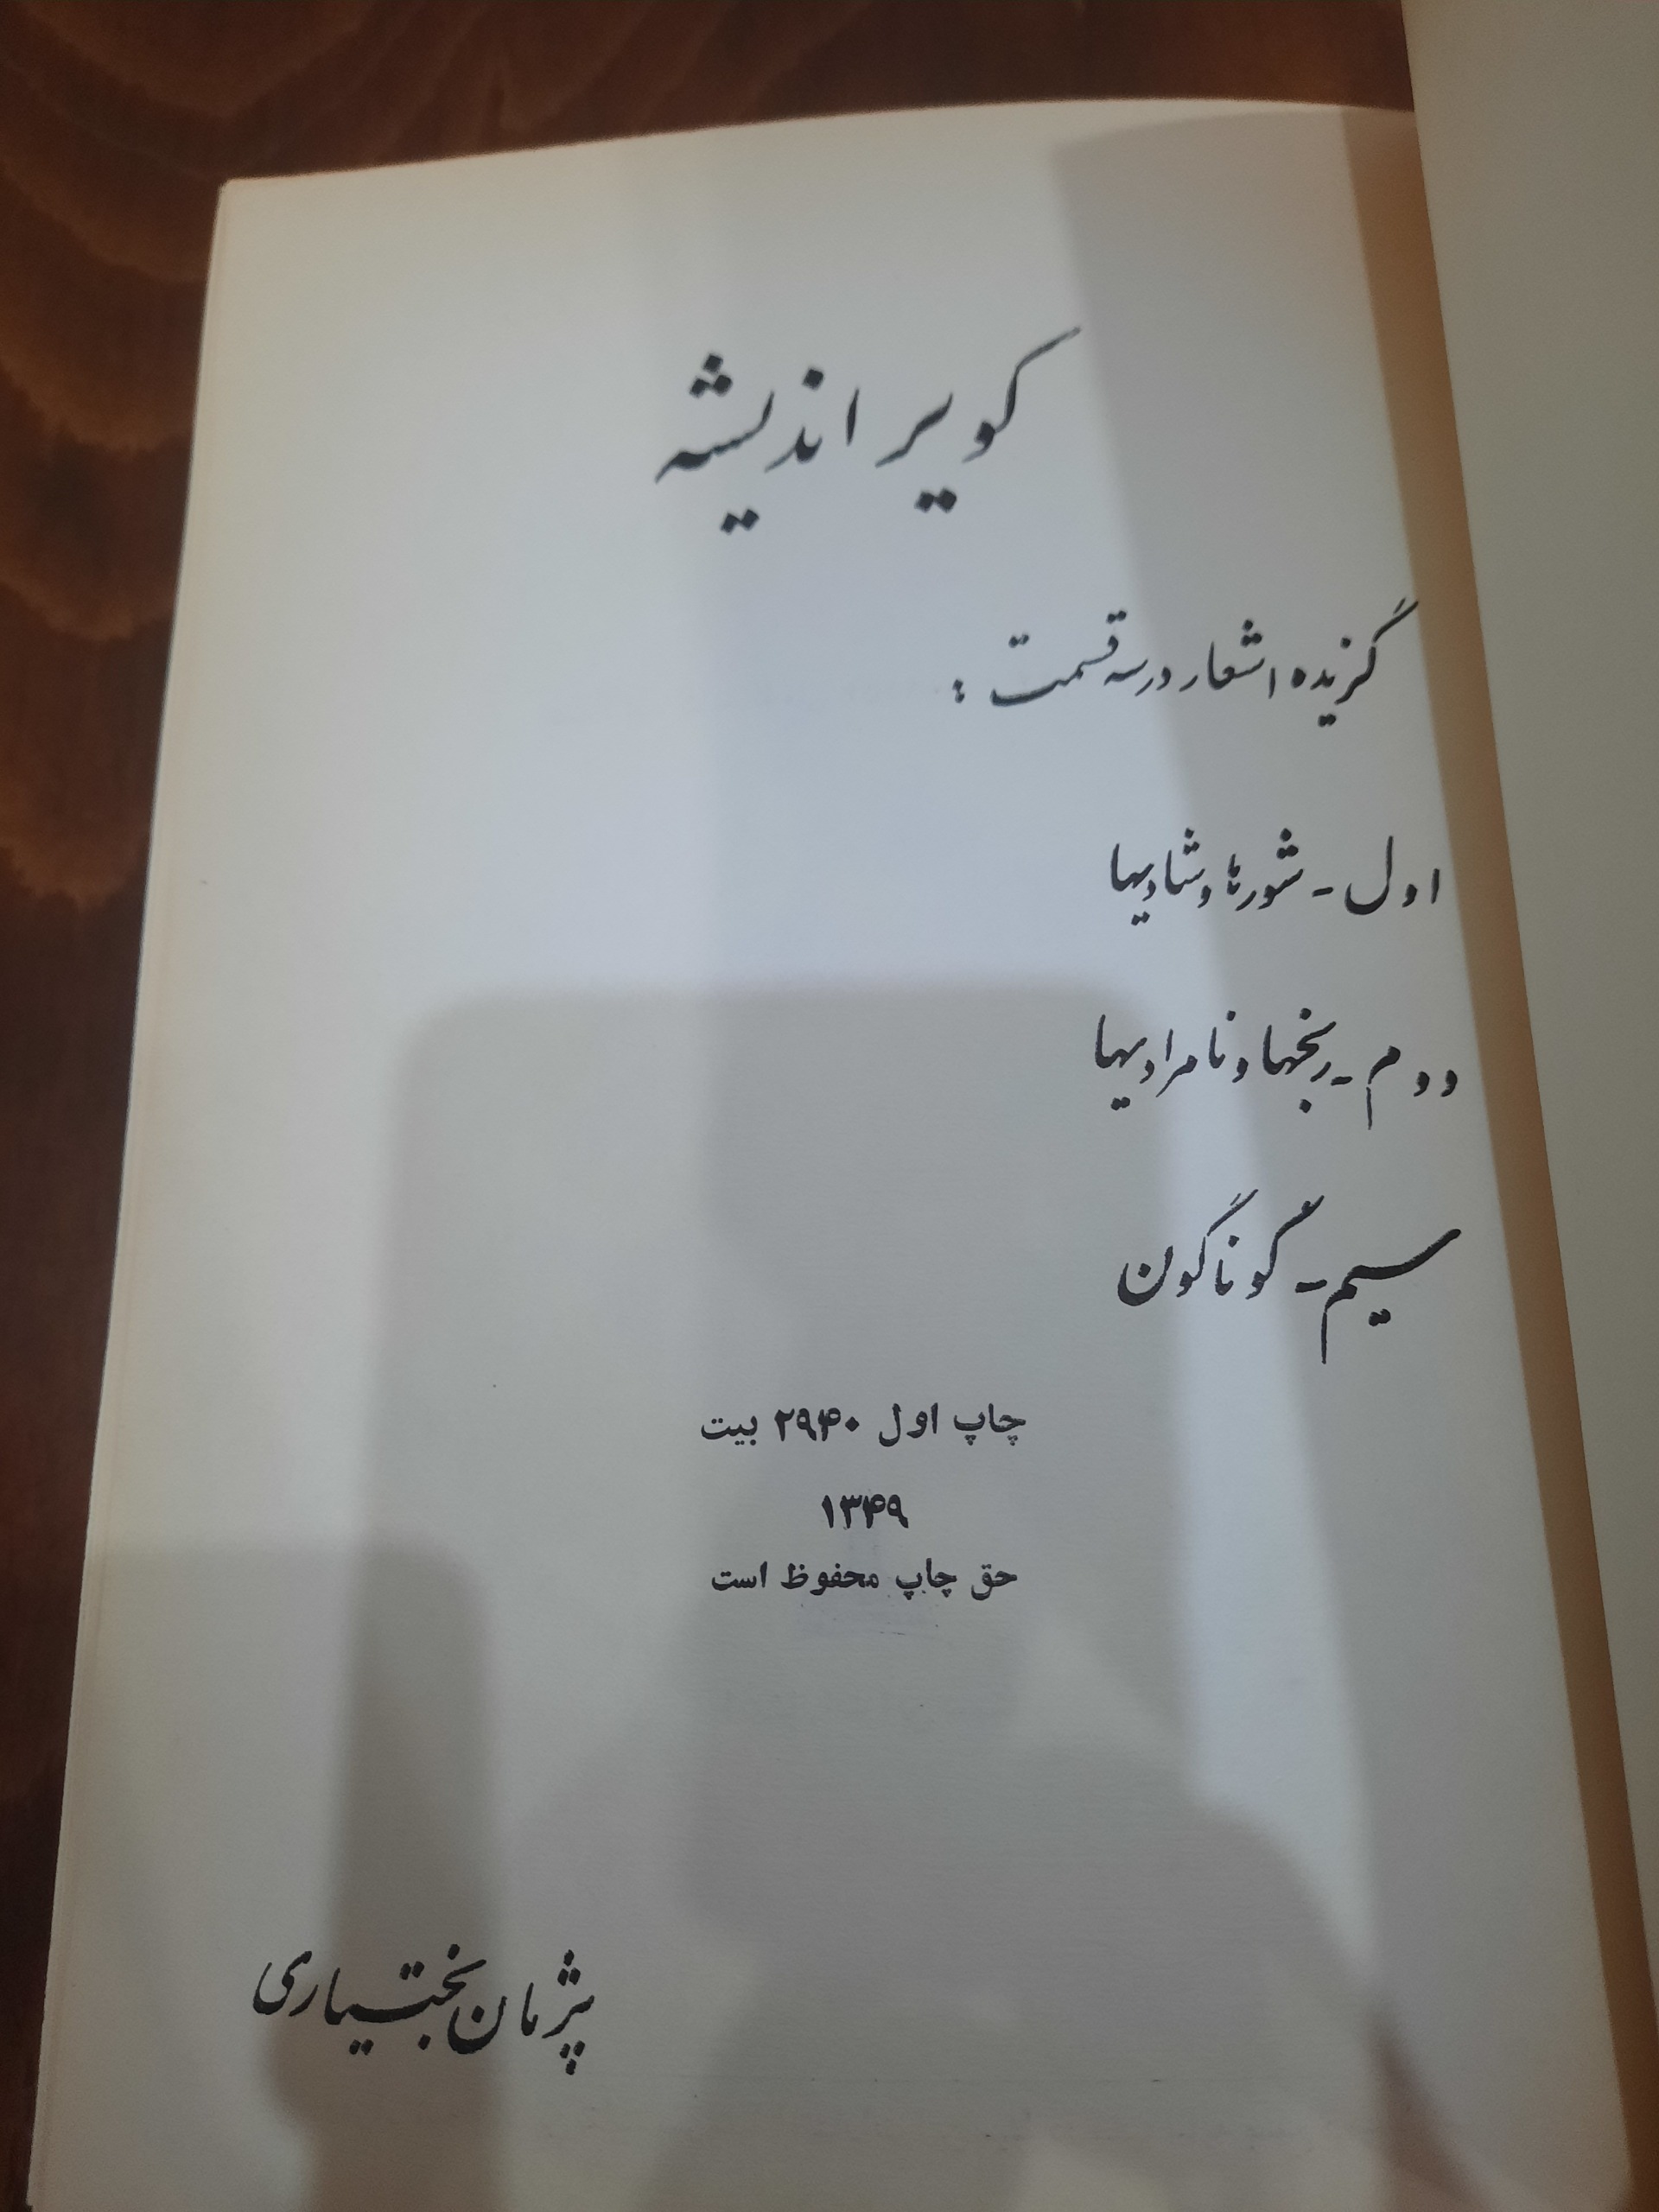 کویر اندیشه
گزیده اشعار در سه قسمت :
اول - شورها و شادیها
دوم - رنجها و نامرادیها
سیم - گوناگون
چاپ اول ۲۹۴۰ بیت
۱۳۴۹
حق چاپ محفوظ است
پژمان بختیاری